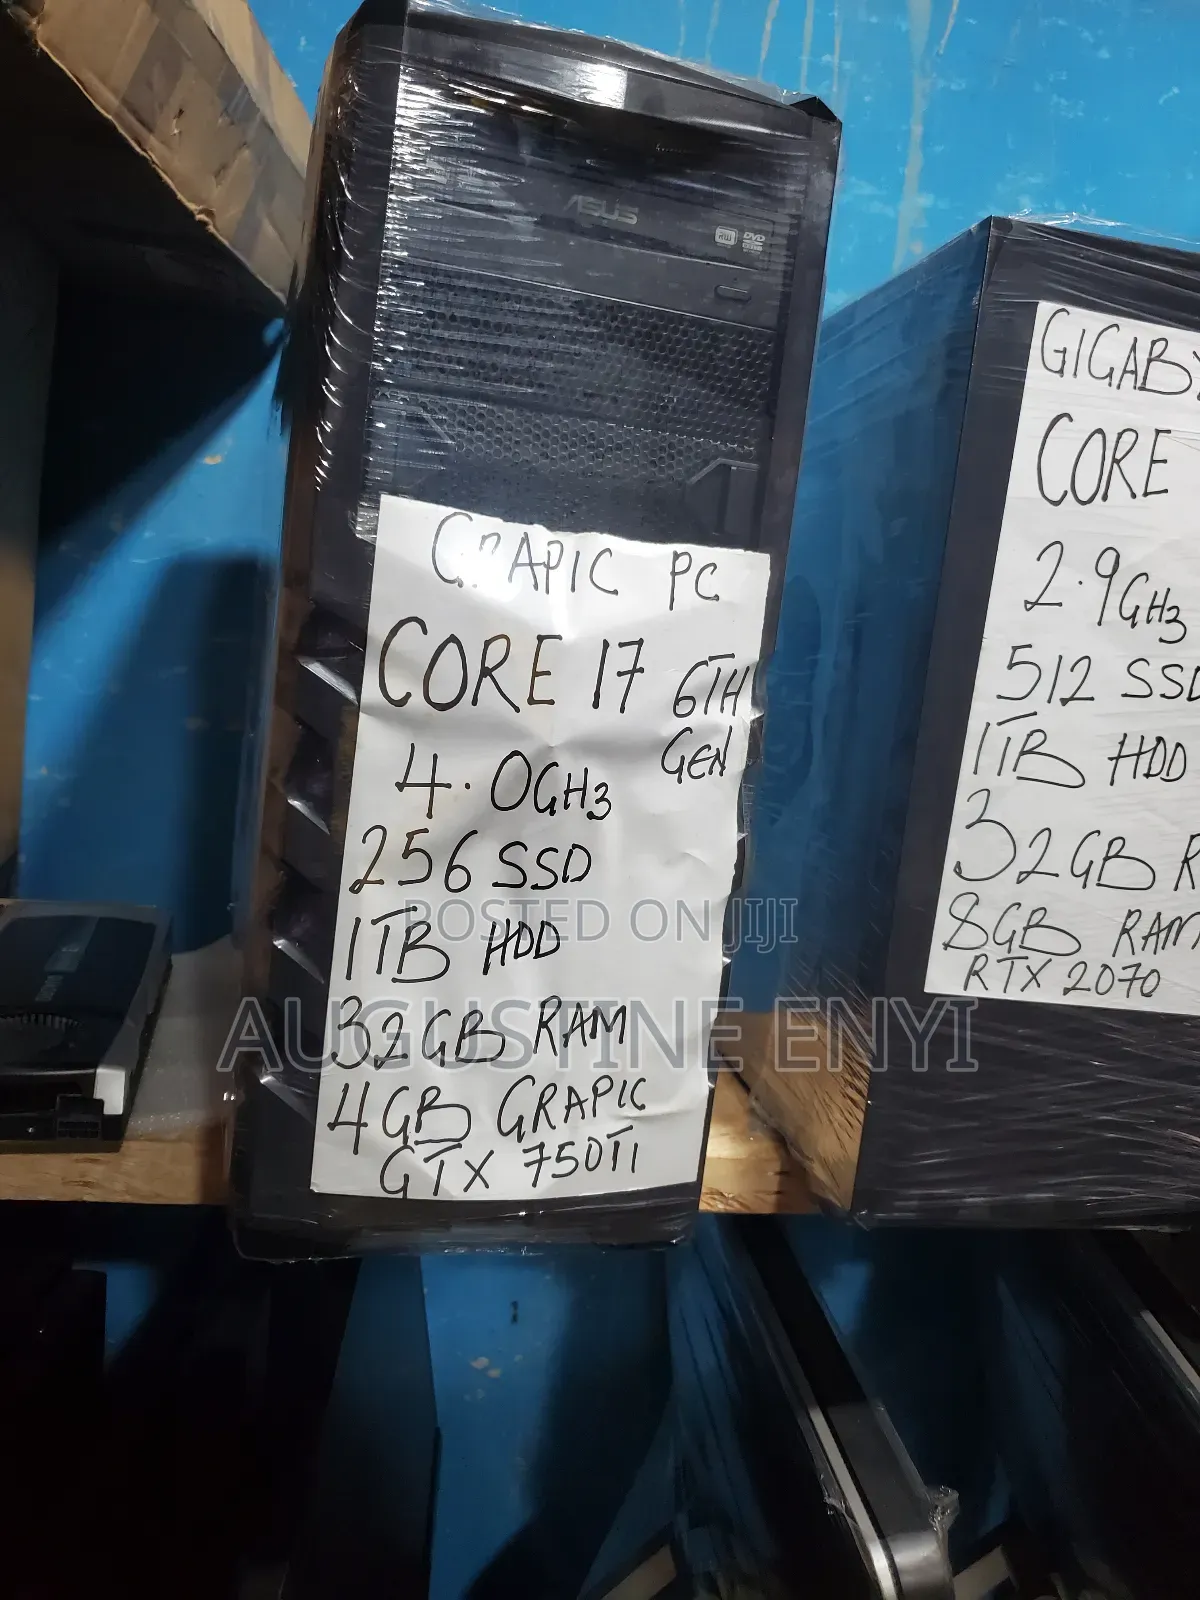 ASUS
RW DVD
GRAPIC PC
CORE I7 6TH
GEN
4.0GHz
256 SSD
1TB HDD
32GB RAM
4GB GRAPIC
GTX 750TI
GIGABY
CORE
2.9GHz
512 SSD
1TB HDD
32GB R
8GB RAM
RTX 2070
POSTED ON JIJI
AUGUSTINE ENYI